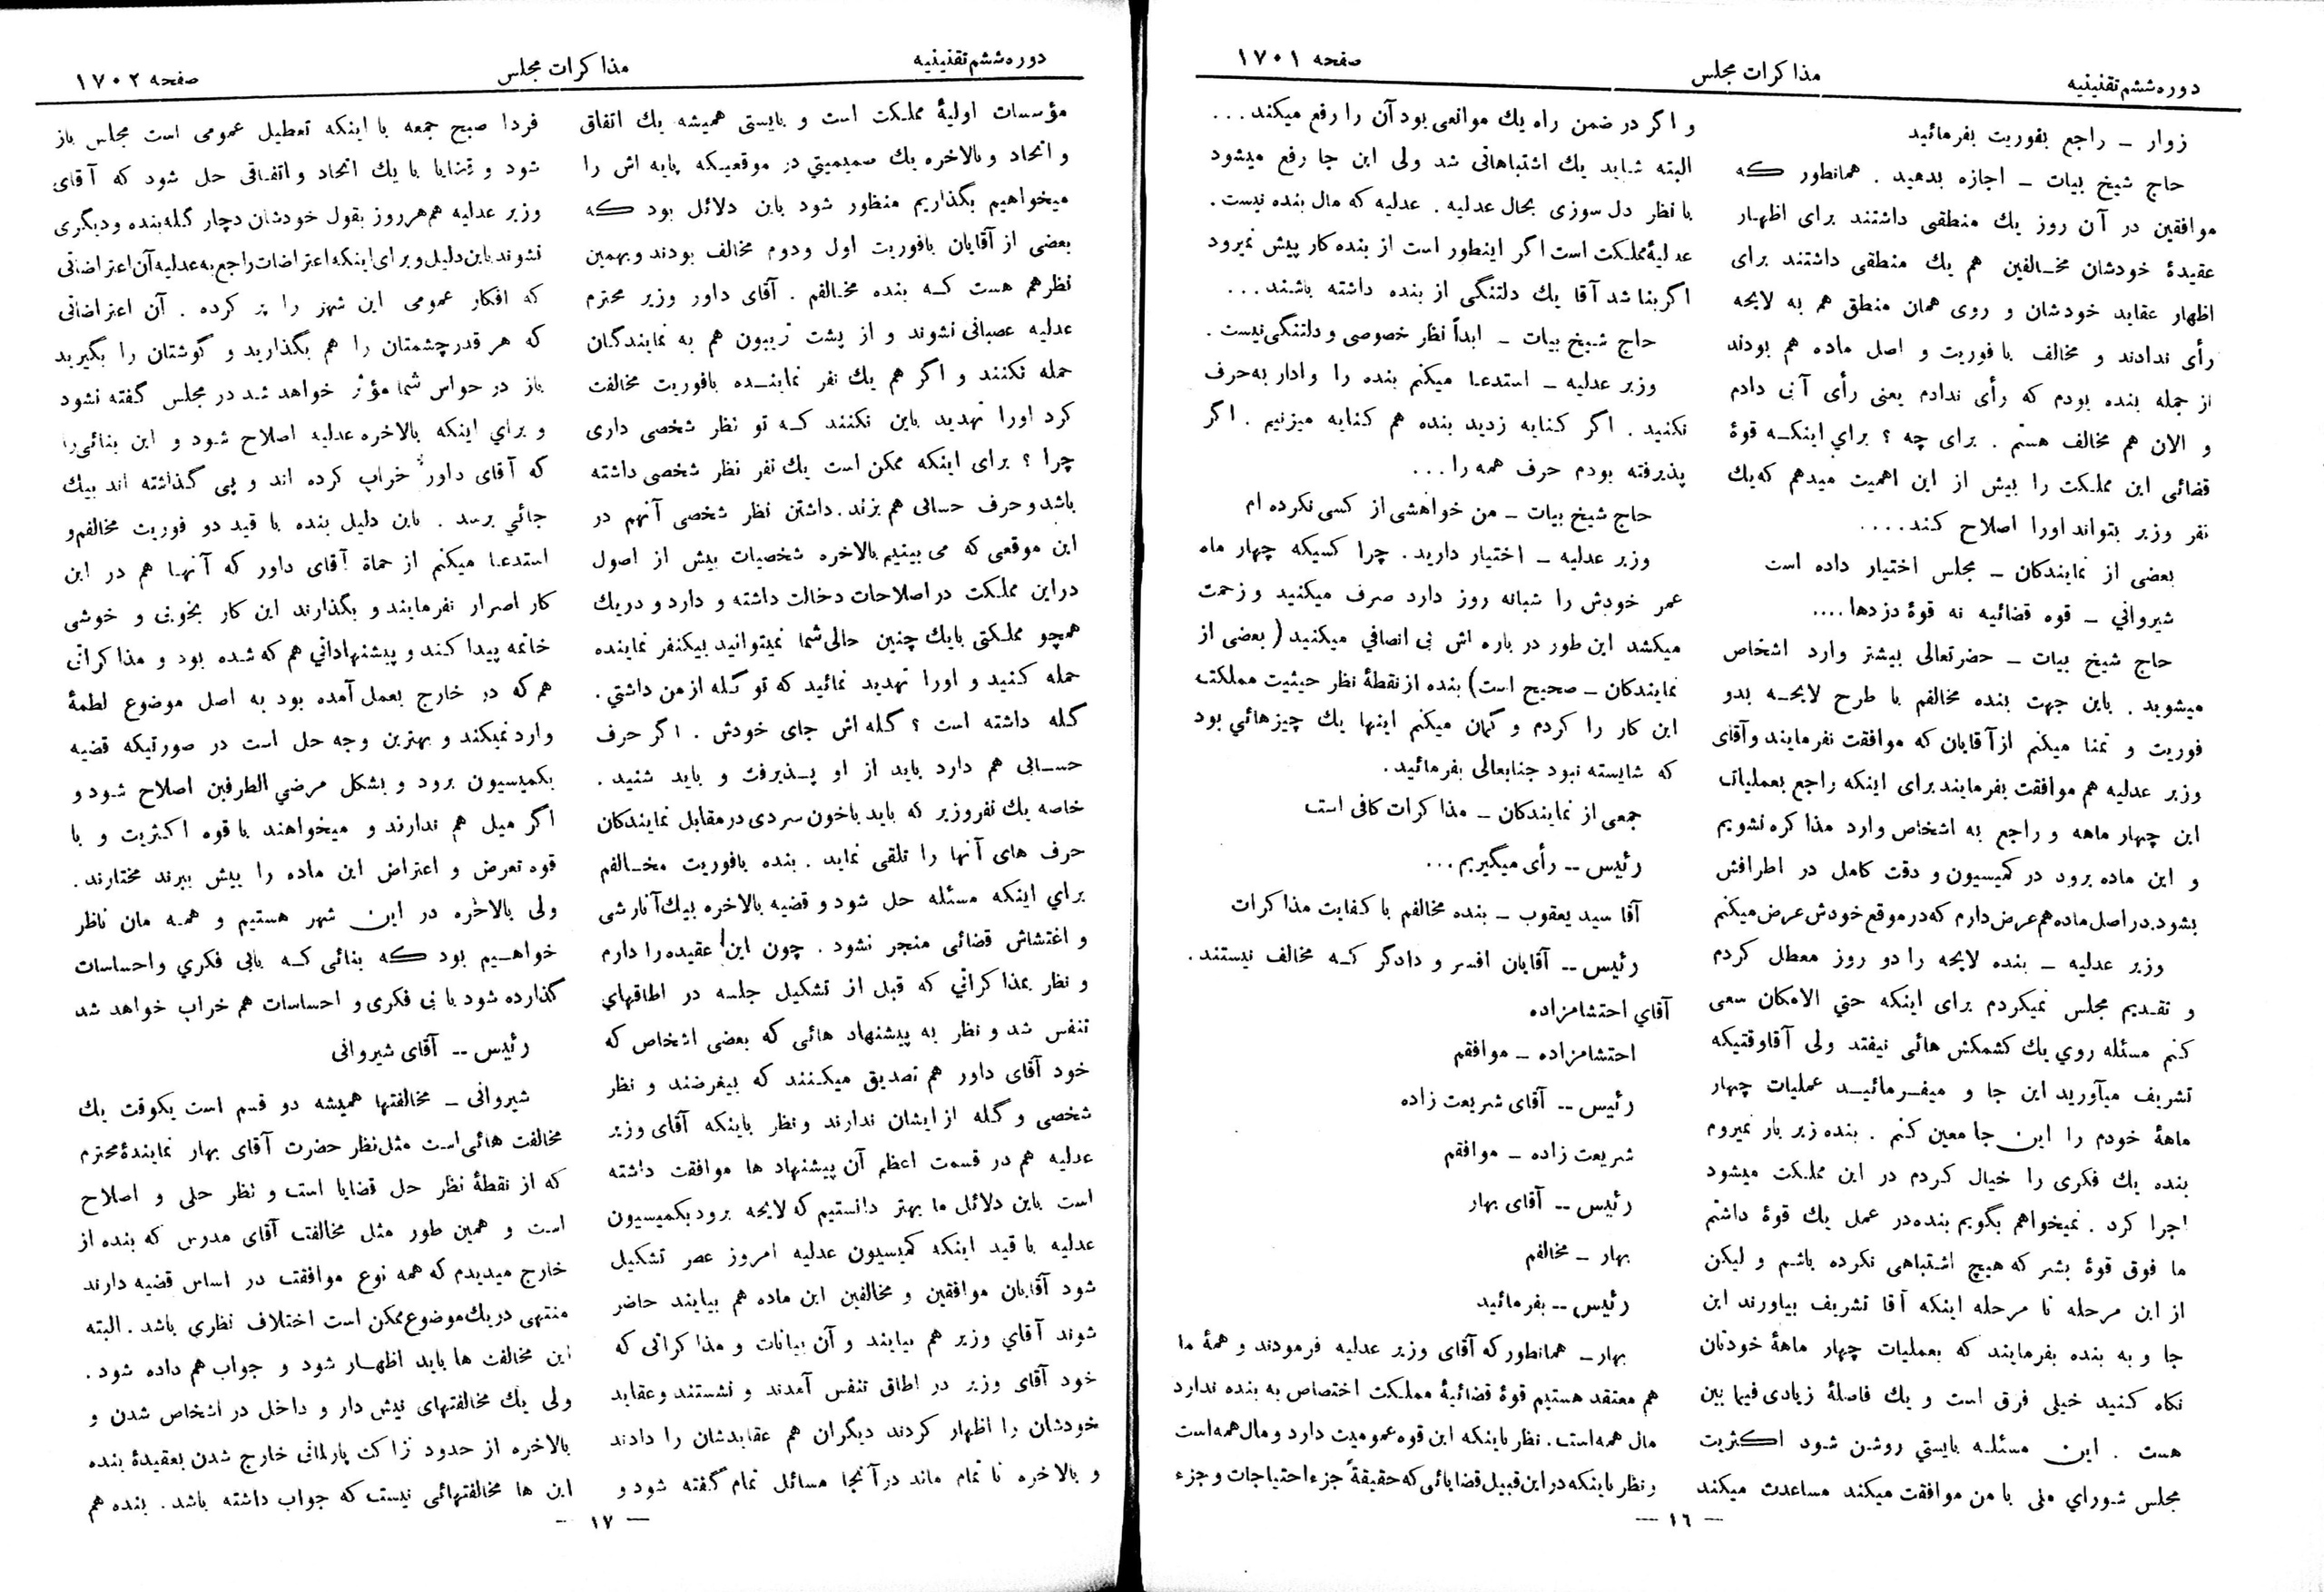 دوره ششم تقنینیه
مذاکرات مجلس
صفحه ۱۷۰۱
زوار ـ راجع بفوریت بفرمائید
حاج شیخ بیات ـ اجازه بدهید . همانطور که
موافقین در آن روز یك منطقی داشتند برای اظهار
عقیدهٔ خودشان مخالفین هم یك منطقی داشتند برای
اظهار عقاید خودشان و روی همان منطق هم به لایحه
رأی ندادند و مخالف با فوریت و اصل ماده هم بودند
از جمله بنده بودم که رأی ندادم یعنی رأی آنی دادم
و الان هم مخالف هستم . برای چه ؟ براي اینکه قوهٔ
قضائی این مملکت را بیش از این اهمیت میدهم که یك
نفر وزیر بتواند اورا اصلاح کند....
بعضی از نمایندکان ـ مجلس اختیار داده است
شیرواني ـ قوه قضائیه نه قوهٔ دزدها....
حاج شیخ بیات ـ حضرتعالی بیشتر وارد اشخاص
میشوید . باین جهت بنده مخالفم با طرح لایحه بدو
فوریت و تمنا میکنم از آقایان که موافقت نفرمایند و آقای
وزیر عدلیه هم موافقت بفرمایند برای اینکه راجع بعملیات
این چهار ماهه و راجع به اشخاص وارد مذاکره نشویم
و این ماده برود در کمیسیون و دقت کامل در اطرافش
بشود. در اصل ماده هم عرض دارم که در موقع خودش عرض میکنم
وزیر عدلیه ـ بنده لایحه را دو روز معطل کردم
و تقدیم مجلس نمیکردم برای اینکه حتي الامکان سعی
کنم مسئله روي یك کشمکش هائی نیفتد ولی آقا وقتیکه
تشریف میآورید این جا و میفرمائید عملیات چهار
ماههٔ خودم را این جا معین کنم . بنده زیر بار نمیروم
بنده یك فکری را خیال کردم در این مملکت میشود
اجرا کرد . نمیخواهم بگویم بنده در عمل یك قوهٔ داشتم
ما فوق قوهٔ بشر که هیچ اشتباهی نکرده باشم و لیکن
از این مرحله تا مرحله اینکه آقا تشریف بیاورند این
جا و به بنده بفرمایند که بعملیات چهار ماههٔ خودتان
نکاه کنید خیلی فرق است و یك فاصلهٔ زیادی فیما بین
هست . این مسئله بایستي روشن شود اکثریت
مجلس شوراي ملی با من موافقت میکند مساعدت میکند
و اکر در ضمن راه یك موانعی بود آن را رفع میکند...
البته شاید یك اشتباهاتی شد ولی این جا رفع میشود
با نظر دل سوزی بحال عدلیه . عدلیه که مال بنده نیست .
عدلیهٔ مملکت است اگر اینطور است از بنده کار پیش نمیرود
اگر بنا شد آقا یك دلتنگی از بنده داشته باشند...
حاج شیخ بیات ـ ابداً نظر خصوصی و دلتنگی نیست .
وزیر عدلیه ـ استدعا میکنم بنده را وادار به حرف
نکنید . اگر کنایه زدید بنده هم کنایه میزنیم . اگر
پذیرفته بودم حرف همه را...
حاج شیخ بیات ـ من خواهشی از کسی نکرده ام
وزیر عدلیه ـ اختیار دارید . چرا کسیکه چهار ماه
عمر خودش را شبانه روز دارد صرف میکنید و زحمت
میکشد این طور در باره اش بی انصافي میکنید (بعضی از
نمایندکان ـ صحیح است) بنده از نقطهٔ نظر حیثیت مملکت
این کار را کردم و گمان میکنم اینها یك چیز هائي بود
که شایسته نبود جنابعالی بفرمائید .
جمعی از نمایندکان ـ مذاکرات کافی است
رئیس -- رأی میگیریم...
آقا سید یعقوب ـ بنده مخالفم با کفایت مذاکرات
رئیس -- آقایان افسر و دادگر که مخالف نیستند .
آقاي احتشامزاده
احتشامزاده ـ موافقم
رئیس -- آقای شریعت زاده
شریعت زاده ـ موافقم
رئیس -- آقای بهار
بهار ـ مخالفم
رئیس -- بفرمائید
بهار ـ همانطور که آقای وزیر عدلیه فرمودند و همهٔ ما
هم معتقد هستیم قوهٔ قضائیهٔ مملکت اختصاص به بنده ندارد
مال همه است . نظر باینکه این قوه عمومیت دارد و مال همه است
و نظر باینکه در این قبیل قضایائی که حقیقةً جزء احتیاجات و جزء
— ١٦ —
دوره ششم تقنینیه
مذاکرات مجلس
صفحه ۱۷۰۲
مؤسسات اولیهٔ مملکت است و بایستی همیشه یك اتفاق
و اتحاد و بالاخره یك صمیمیتي در موقعیکه پایه اش را
میخواهیم بگذاریم منظور شود باین دلائل بود که
بعضی از آقایان بافوریت اول ودوم مخالف بودند و بهمین
نظر هم هست که بنده مخالفم . آقای داور وزیر محترم
عدلیه عصبانی نشوند و از پشت تریبون هم به نمایندگان
حمله نکنند و اگر هم یك نفر نماینده بافوریت مخالفت
کرد اورا تهدید باین نکنند که تو نظر شخصی داری
چرا ؟ برای اینکه ممکن است یك نفر نظر شخصی داشته
باشد و حرف حسابی هم بزند . داشتن نظر شخصی آنهم در
این موقعی که می بینیم بالاخره شخصیات بیش از اصول
دراین مملکت در اصلاحات دخالت داشته و دارد و در یك
همچو مملکتی بایك چنین حالی شما نمیتوانید بیکنفر نماینده
حمله کنید و اورا تهدید نمائید که تو گله از من داشتي .
گله داشته است ؟ گله اش جای خودش . اگر حرف
حسابی هم دارد باید از او پذیرفت و باید شنید .
خاصه یك نفر وزیر که باید باخون سردی در مقابل نمایندکان
حرف های آنها را تلقی نماید . بنده بافوریت مخالفم
براي اینکه مسئله حل شود و قضیه بالاخره بیك آنارشی
و اغتشاش قضائی منجر نشود . چون این عقیده را دارم
و نظر بمذاکراتي که قبل از تشکیل جلسه در اطاقهاي
تنفس شد و نظر به پیشنهاد هائی که بعضی اشخاص که
خود آقای داور هم تصدیق میکنند که بیغرضند و نظر
شخصی و گله از ایشان ندارند و نظر باینکه آقای وزیر
عدلیه هم در قسمت اعظم آن پیشنهاد ها موافقت داشته
است باین دلائل ما بهتر دانستیم که لایحه برود بکمیسیون
عدلیه با قید اینکه کمیسیون عدلیه امروز عصر تشکیل
شود آقایان موافقین و مخالفین این ماده هم بیایند حاضر
شوند آقاي وزیر هم بیایند و آن بیانات و مذاکراتی که
خود آقای وزیر در اطاق تنفس آمدند و نشستند و عقاید
خودشان را اظهار کردند دیگران هم عقایدشان را دادند
و بالاخره نا تمام ماند در آنجا مسائل تمام گفته شود و
فردا صبح جمعه با اینکه تعطیل عمومی است مجلس باز
شود و قضایا با یك اتحاد و اتفاقی حل شود که آقای
وزیر عدلیه هم هر روز بقول خودشان دچار گله بنده و دیگری
نشوند باین دلیل و برای اینکه اعتراضات راجع به عدلیه آن اعتراضاتی
که افکار عمومی این شهر را پر کرده . آن اعتراضاتی
که هر قدر چشمتان را هم بگذارید و گوشتان را بگیرید
باز در حواس شما مؤثر خواهد شد در مجلس گفته نشود
و براي اینکه بالاخره عدلیه اصلاح شود و این بنائی را
که آقای داور خراب کرده اند و پی گذاشته اند بیك
جائي برسد . باین دلیل بنده با قید دو فوریت مخالفم و
استدعا میکنم از حماة آقای داور که آنها هم در این
کار اصرار نفرمایند و بگذارند این کار بخوبی و خوشی
خاتمه پیدا کند و پیشنهاداتي هم که شده بود و مذاکراتی
هم که در خارج بعمل آمده بود به اصل موضوع لطمهٔ
وارد نمیکند و بهترین وجه حل است در صورتیکه قضیه
بکمیسیون برود و بشکل مرضي الطرفین اصلاح شود و
اگر میل هم ندارند و میخواهند با قوه اکثریت و با
قوه تعرض و اعتراض این ماده را پیش ببرند مختارند .
ولی بالاخره در این شهر هستیم و همه مان ناظر
خواهیم بود که بنائی که بابی فکري و احساسات
گذارده شود با بی فکری و احساسات هم خراب خواهد شد
رئیس -- آقای شیروانی
شیروانی ـ مخالفتها همیشه دو قسم است یکوقت یك
مخالفت هائی است مثل نظر حضرت آقای بهار نمایندهٔ محترم
که از نقطهٔ نظر حل قضایا است و نظر حلی و اصلاح
است و همین طور مثل مخالفت آقای مدرس که بنده از
خارج میدیدم که همه نوع موافقت در اساس قضیه دارند
منتهی در یك موضوع ممکن است اختلاف نظری باشد . البته
این مخالفت ها باید اظهار شود و جواب هم داده شود .
ولی یك مخالفتهای نیش دار و داخل در اشخاص شدن و
بالاخره از حدود نزاکت پارلمانی خارج شدن بعقیدهٔ بنده
این ها مخالفتهائی نیست که جواب داشته باشد . بنده هم
— ١٧ —